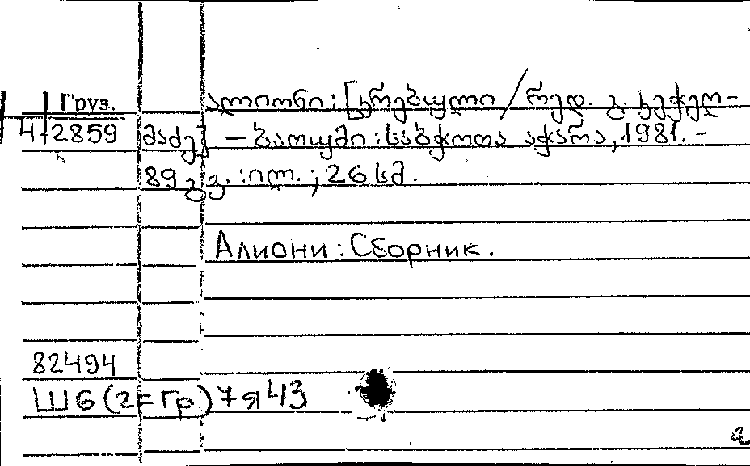 Груз.
ალიონი: [კრებული / რედ. გ. ხუჭულ-
4-2859 მაძე] – ბათუმი: საბჭოთა აჭარა, 1981. –
89 გვ. :ილ. ; 26 სმ.
Алиони: Сборник.
82494
Ш6(2=Гр)7я43